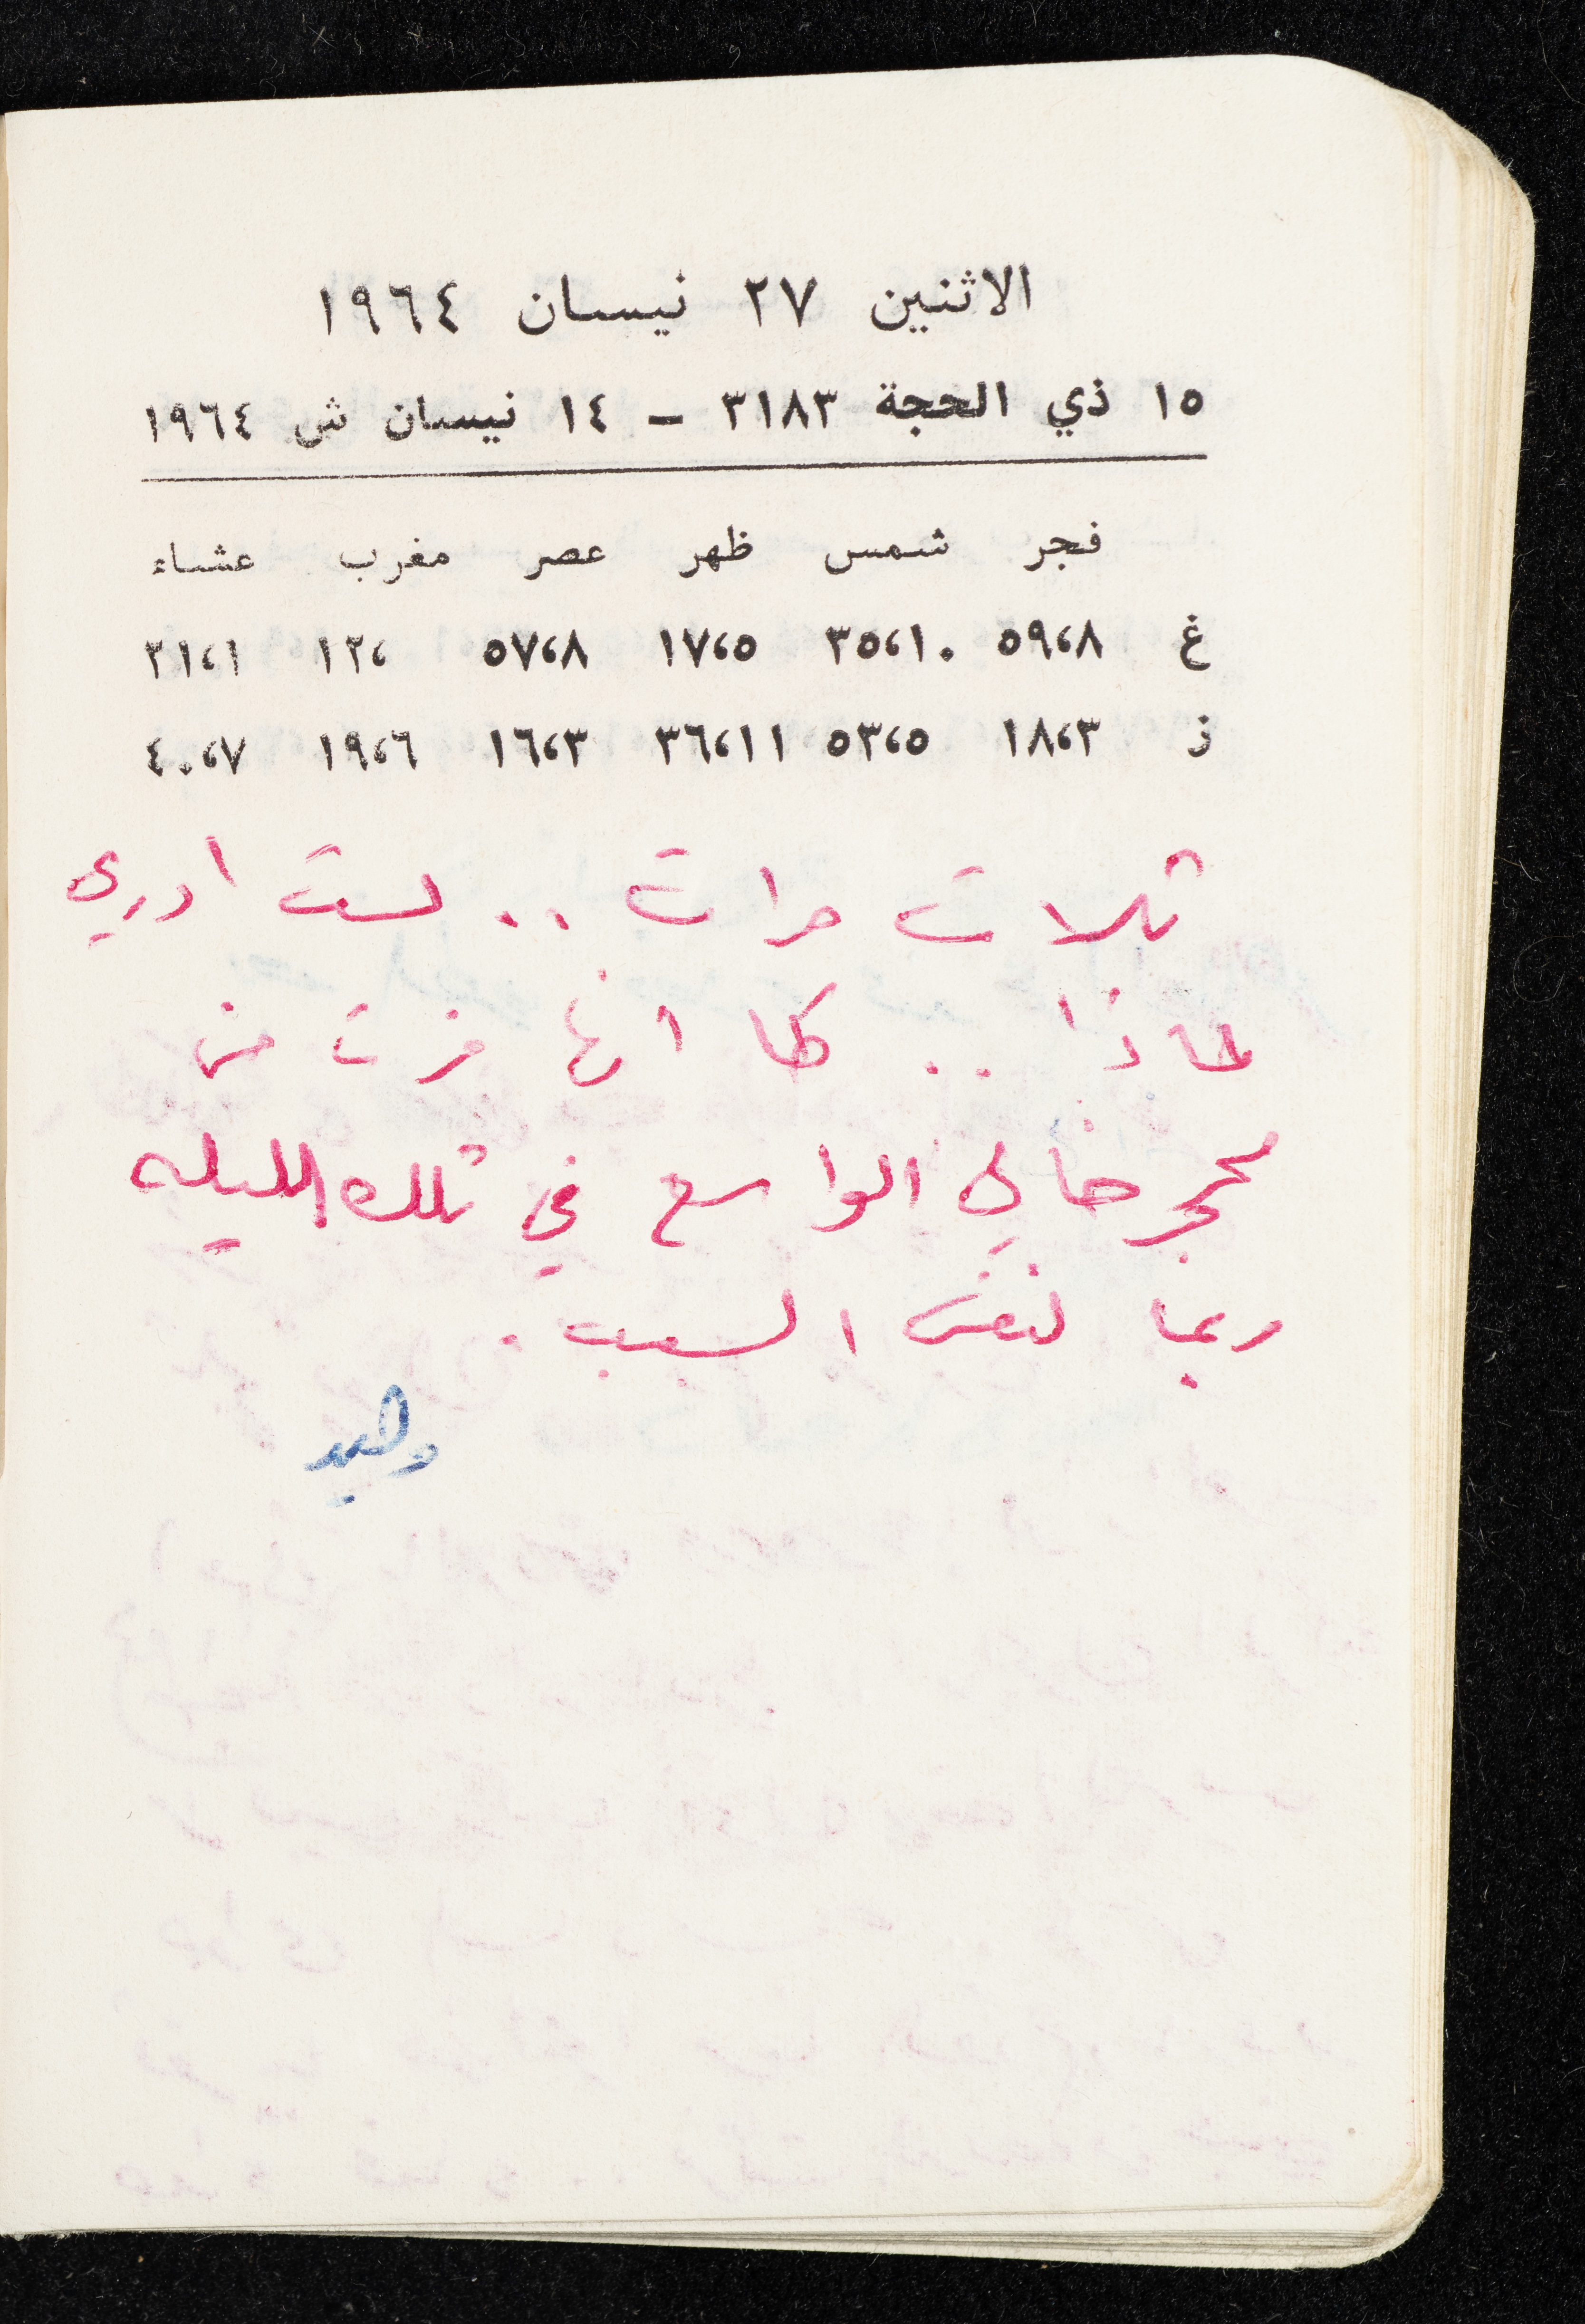 الاثنين ٢٧ نيسان ١٩٦٤
١٥ ذي الحجة ٣١٨٣ – ١٤ نيسان ش ١٩٦٤
فجر شمس ظهر عصر مغرب عشاء
غ ٥٩،٨ ٣٥،١٠ ١٧،٥ ٥٧،٨ ١٢، ٣١،١
ز ١٨،٣ ٥٣،٥ ٣٦،١١ ١٦،٣ ١٩،٦ ٤٠،٧
ثلاث مرات .. لست ادري
لماذا .. كما انها فرت من
الواسع في تلك الليله
ربما لنفس السبب .
وليد